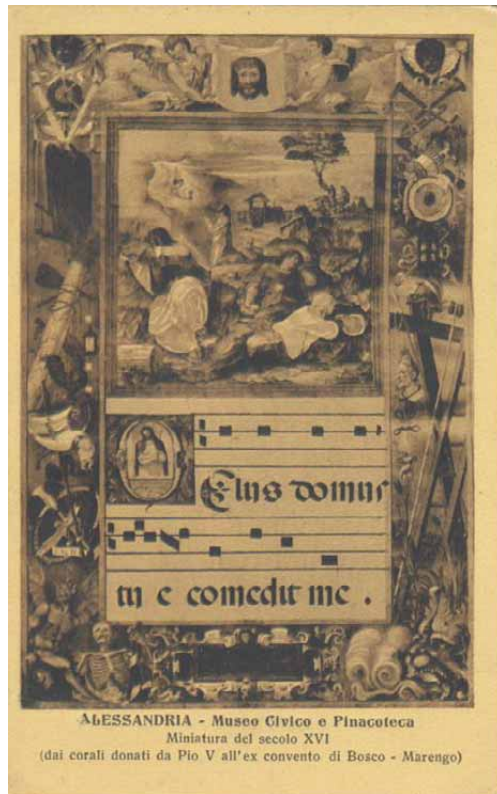 Elus domus
tu e comedit me .
ALESSANDRIA - Museo Civico e Pinacoteca
Miniatura del secolo XVI
(dai corali donati da Pio V all'ex convento di Bosco - Marengo)